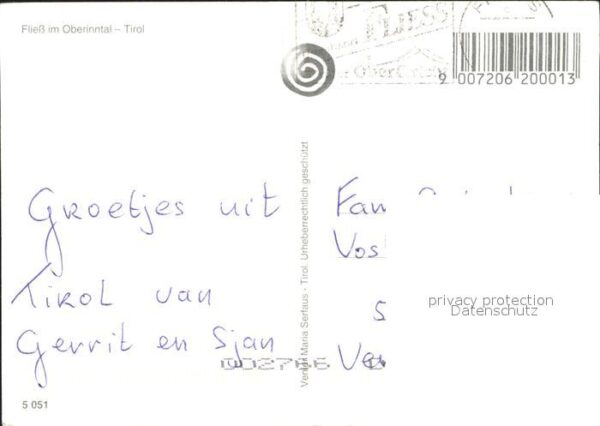 Fließ im Oberinntal – Tirol
FLIESS
9 007206 200013
Groetjes uit
Tirol van
Gerrit en Sjan
Verlag Maria Serfaus - Tirol. Urheberrechtlich geschützt
Fam
privacy protection
Datenschutz
5 051